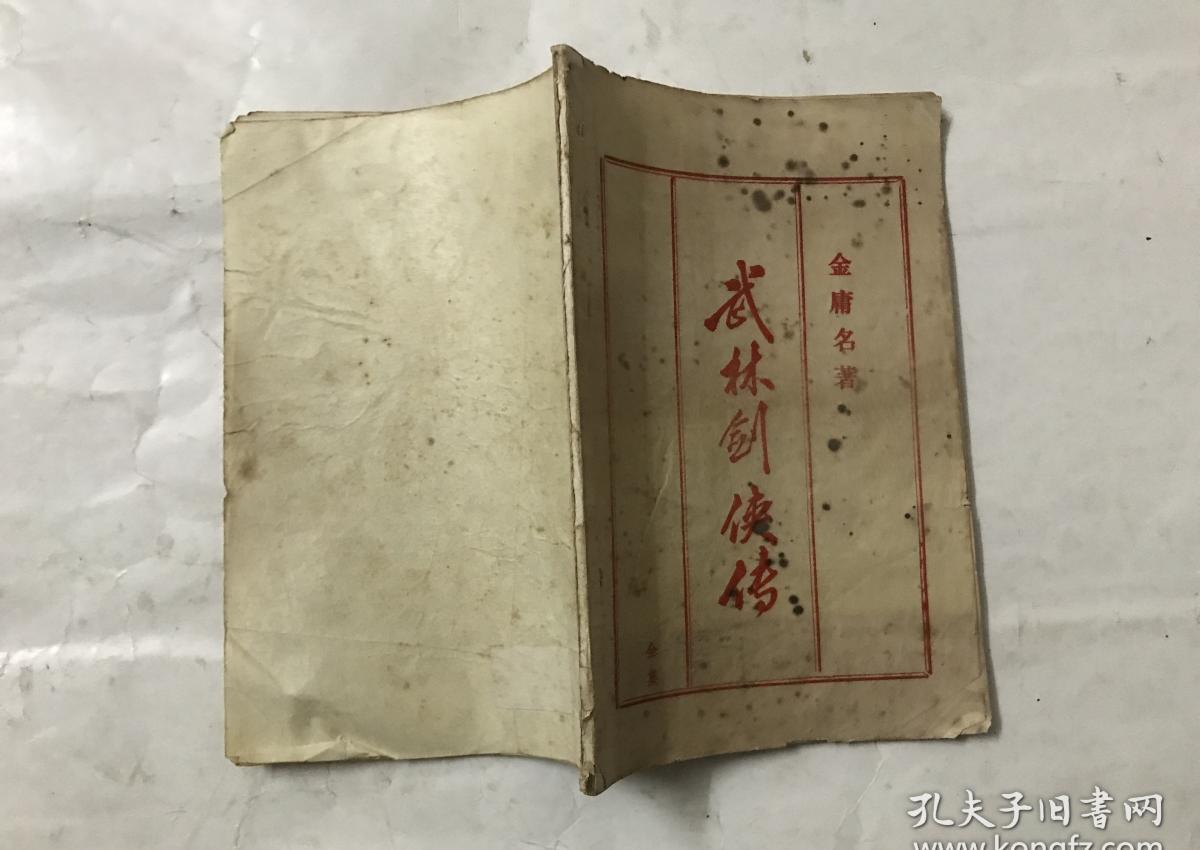 金庸名著
武林剑侠传
全集
孔夫子旧书网
www.kongfz.com